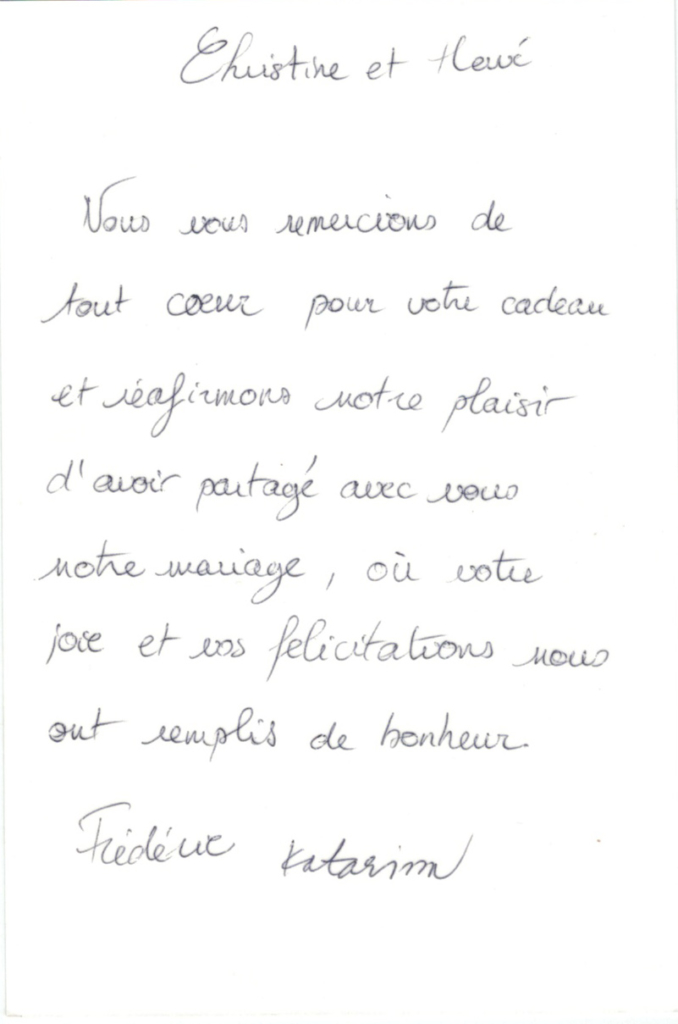 Christine et Hervé
Nous vous remercions de
tout coeur pour votre cadeau
et réafirmons notre plaisir
d'avoir partagé avec vous
notre mariage, où votre
joie et vos felicitations nous
ont remplis de bonheur.
Frédéric